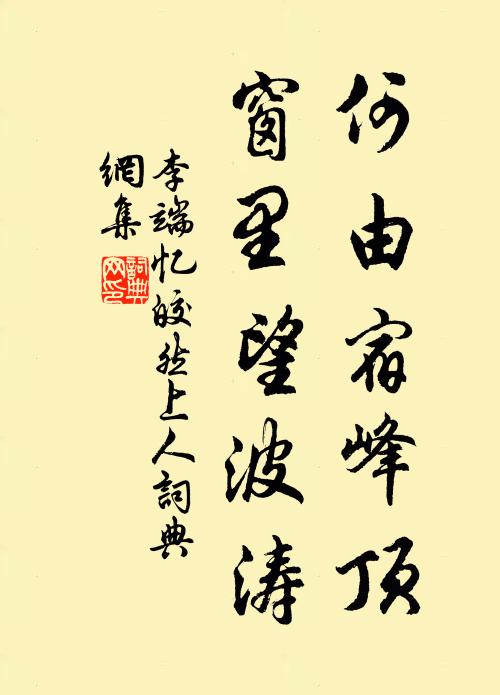 何由宿峰顶
窗里望波涛
李端忆皎然上人詞典
網集
詞典
网印